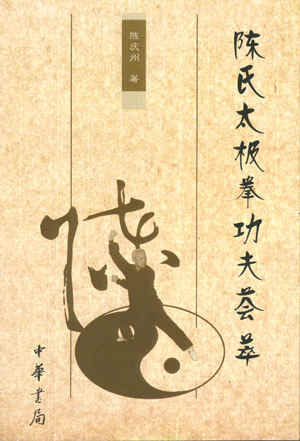 陈氏太极拳功夫荟萃
陈庆州 著
中华书局